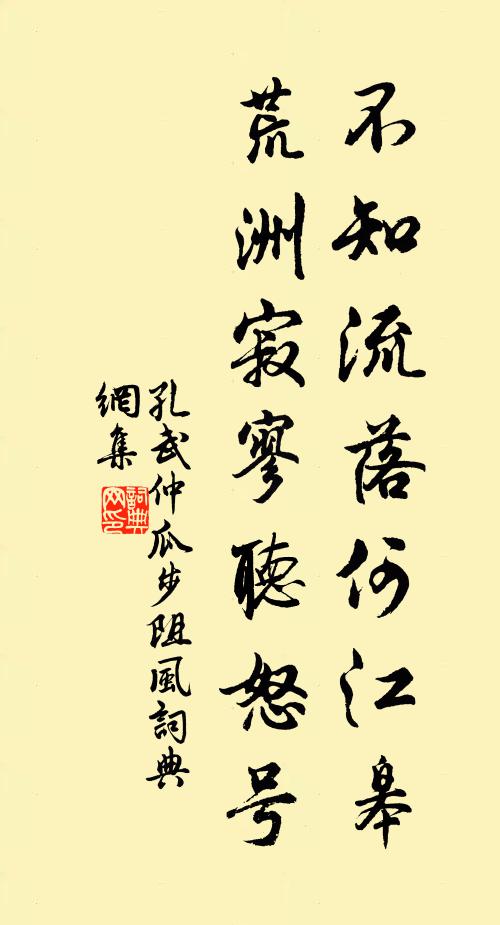 不知流落何江皋
荒洲寂寥聽怒号
孔武仲瓜步阻風詞典
網集
詞典网印